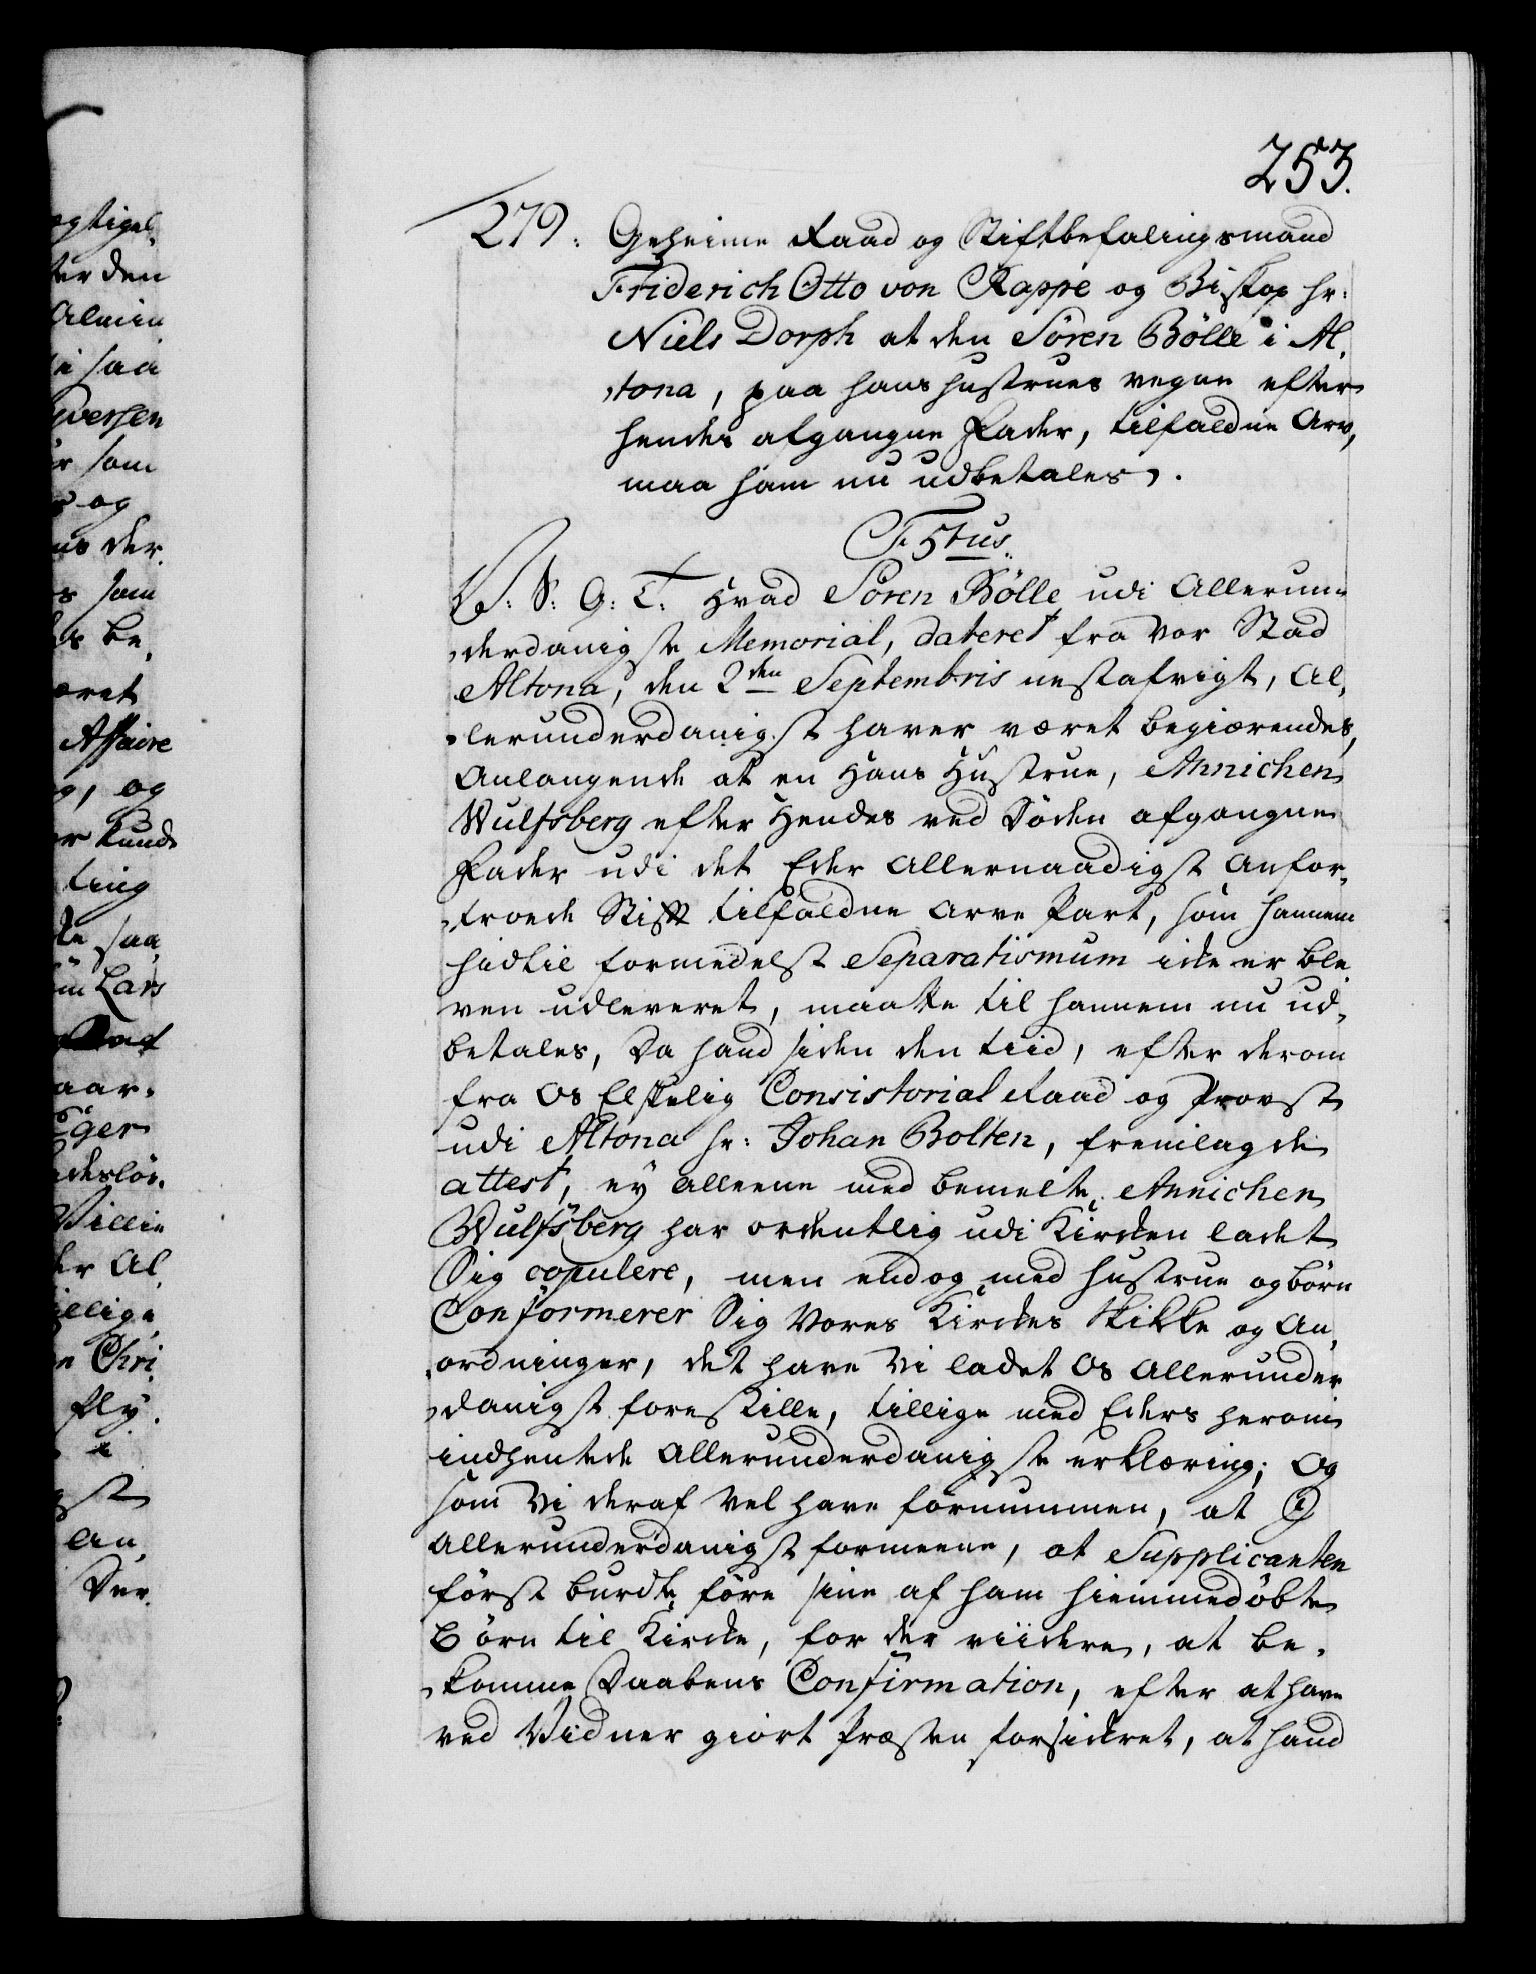 253.
279. Geheime Raad og Stiftbefalingsmand
Friderich Otto von Rappe og Biskop hr:
Niels Dorph at den Sören Bölle i Al,
,tona, paa hans hustrues vegne efter
hendes afgangne Fader, tilfaldne Arv,
maa ham nu udbetales.
F. 5tus.
V: S: G: T: Hvad Sören Bölle udi Allerun,,
,derdanigste Memorial, dateret fra vor Stad
Altona, den 2den Septembris nestafvigt, Al,
,lerunderdanigst haver været begiærendes,
Anlangende at en Hans Hustrue, Annichen
Wulfsberg efter Hendes ved Döden afgangne
Fader udi det Eder Allernaadigst Anfor,
,troede Stift tilfaldne Arve Part, som hannem
hidtil formedelst Separatismum icke er ble
ven udleveret, maatte til hannem nu ud,
betales, Da hand siden den tiid, efter derom
fra Os Elskelig Consistorial Raad og Provst
udi Altona hr: Johan Bolten, fremlagde
attest, ey alleene med bemelte Annichen
Wulfsberg har ordentlig udi Kircken ladet
Sig copulere, men endog med hustrue og börn
Conformerer Sig Vores Kirckes Skikke og An,
,ordninger, det have Vi ladet Os Allerunder
,danigst forestille, tillige med Eders herom
indhentede Allerunderdanigste erklæring; Og
som Vi deraf vel have fornummen, at I
Allerunderdanigst formeene, at Supplicanten
först burdte före sine af ham hiemmedöbte
Börn til Kircke, for der viidere, at be,
,komme Daabens Confirmation, efter at have
ved Vidner giort Præsten forsickret, at hand